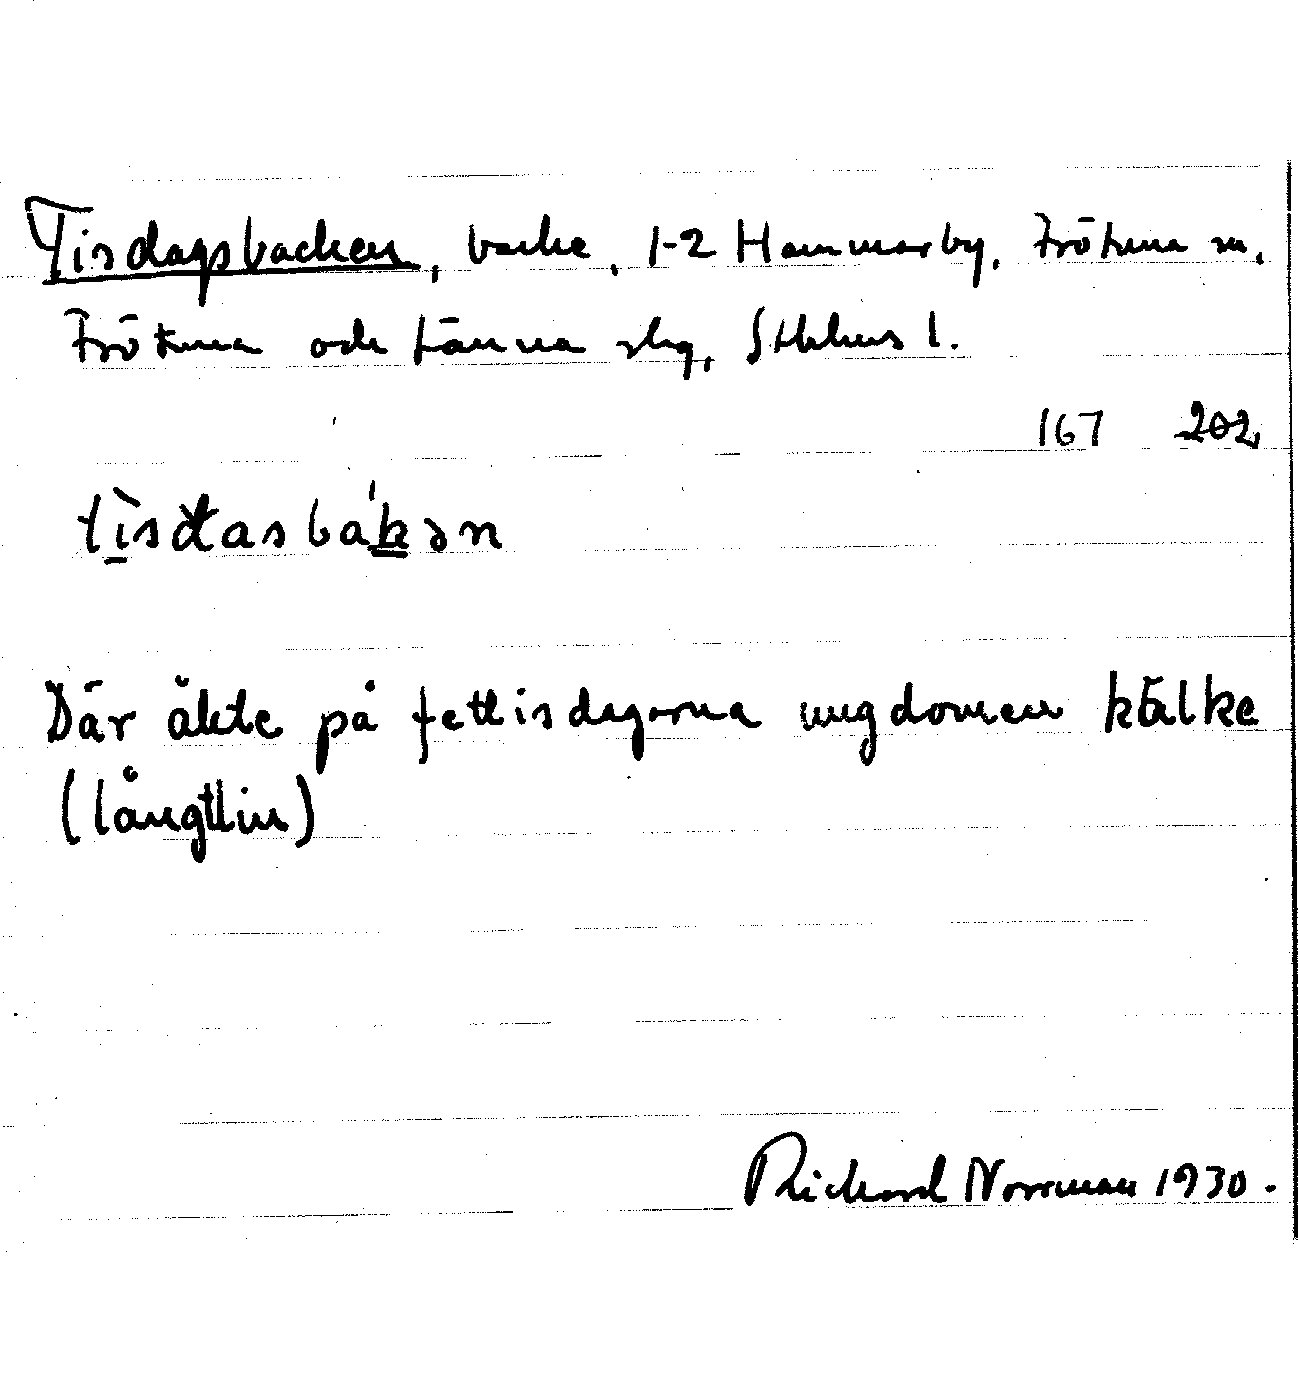 Tisdagsbacken, backe, 1-2 Hammarby, Frötuna sn,
Frötuna och Länna skg, Sthlms l.
167 202
tìsdasbákən
Där åkte på fettisdagarna ungdomen kälke
(långtlin)
Richard Norrman 1930.